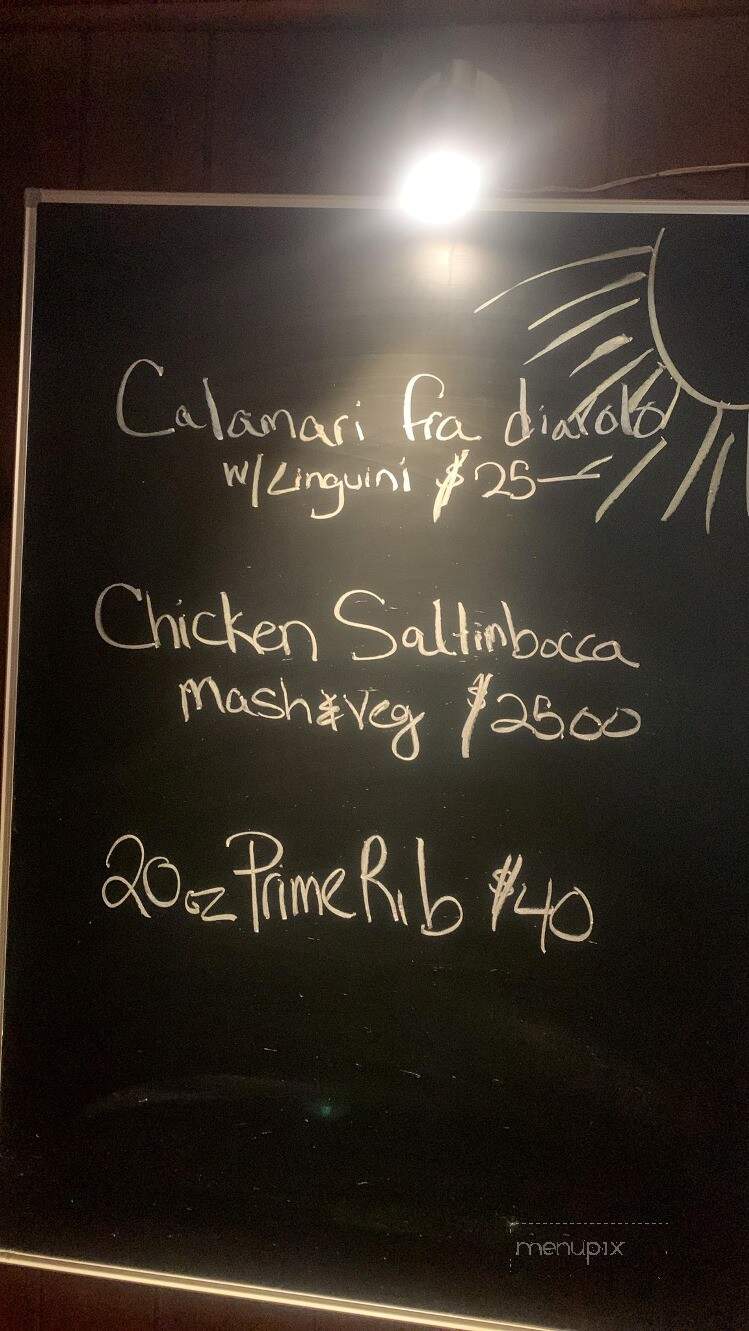 Calamari fra diavolo
w/Linguini $25—
Chicken Saltimbocca
Mash & Veg $25.00
20oz Prime Rib $40
menupix